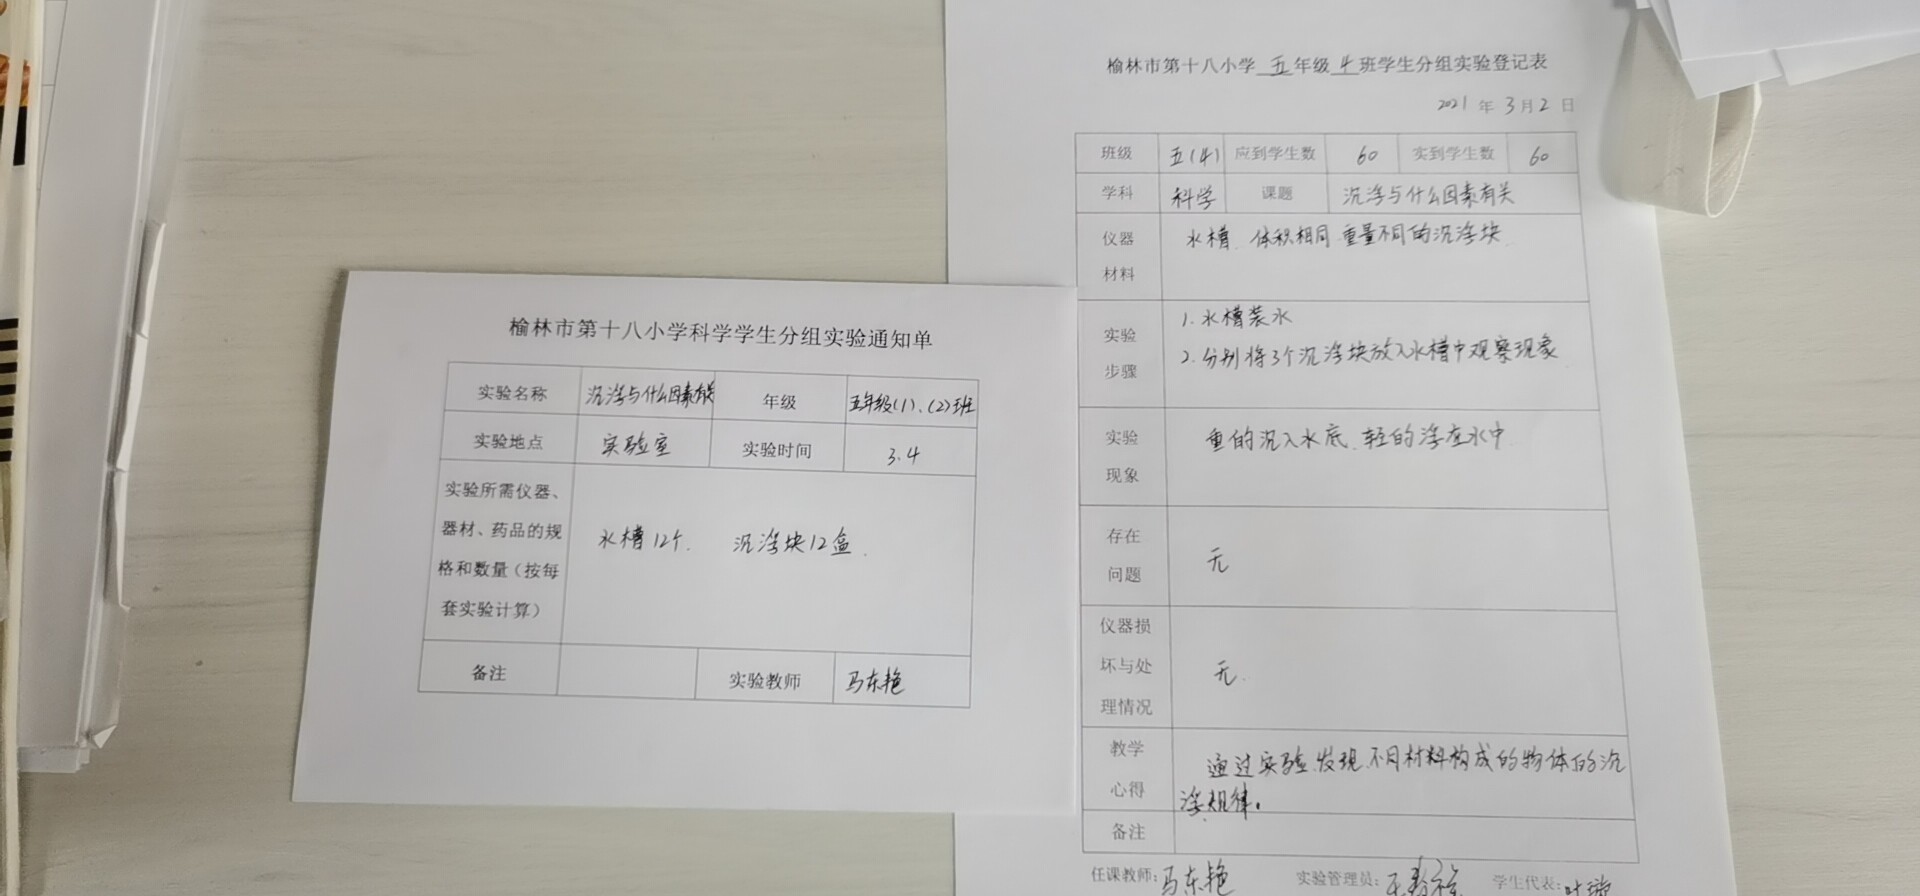 榆林市第十八小学科学学生分组实验通知单
实验名称 沉浮与什么因素有关 年级 五年级(1)、(2)班
实验地点 实验室 实验时间 3.4
实验所需仪器、
器材、药品的规
格和数量(按每
套实验计算)
水槽12个. 沉浮块12盒.
备注 实验教师 马东艳
榆林市第十八小学 五 年级 4 班学生分组实验登记表
2021 年 3 月 2 日
班级 五(4) 应到学生数 60 实到学生数 60
学科 科学 课题 沉浮与什么因素有关
仪器
材料
水槽、体积相同重量不同的沉浮块
实验
步骤
1.水槽装水
2.分别将3个沉浮块放入水槽中观察现象
实验
现象
重的沉入水底、轻的浮在水中
存在
问题
无
仪器损
坏与处
理情况
无.
教学
心得
通过实验发现不同材料构成的物体的沉
浮规律。
备注
任课教师:马东艳 实验管理员: 学生代表: